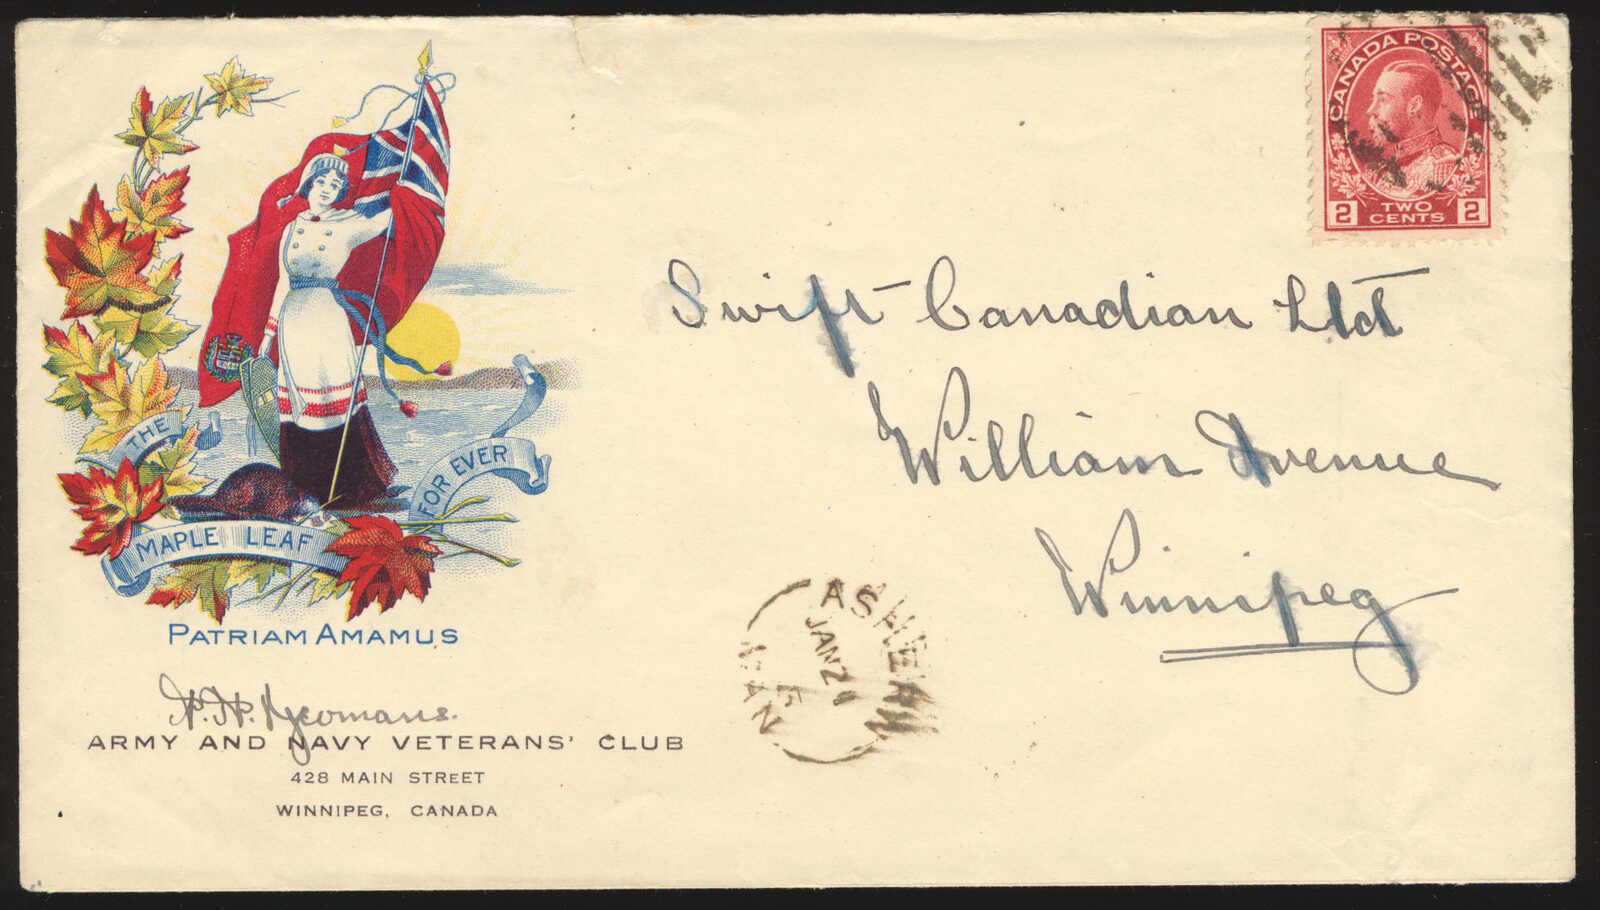 CANADA POSTAGE
2 TWO CENTS 2
THE
MAPLE LEAF
FOR EVER
PATRIAM AMAMUS
Yeomans.
ARMY AND NAVY VETERANS' CLUB
428 MAIN STREET
WINNIPEG, CANADA
Swift Canadian Ltd
William Avenue
Winnipeg
ASHERN
JAN 2
MAN